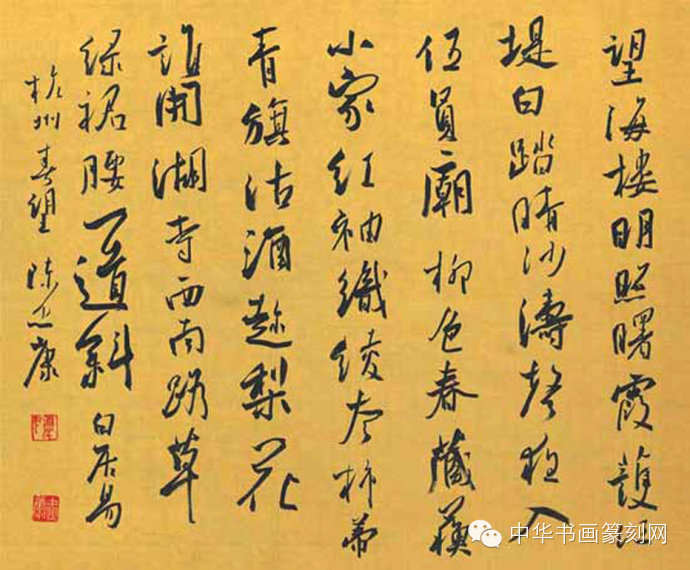 望海楼明照曙霞護江
堤白踏晴沙濤聲夜入
伍員廟柳色春藏蘇
小家紅袖織綾夸柿蒂
青旗沽酒趁梨花
誰開湖寺西南路草
绿裙腰一道斜 白居易
杭州春望 陈忠康
中华书画篆刻网